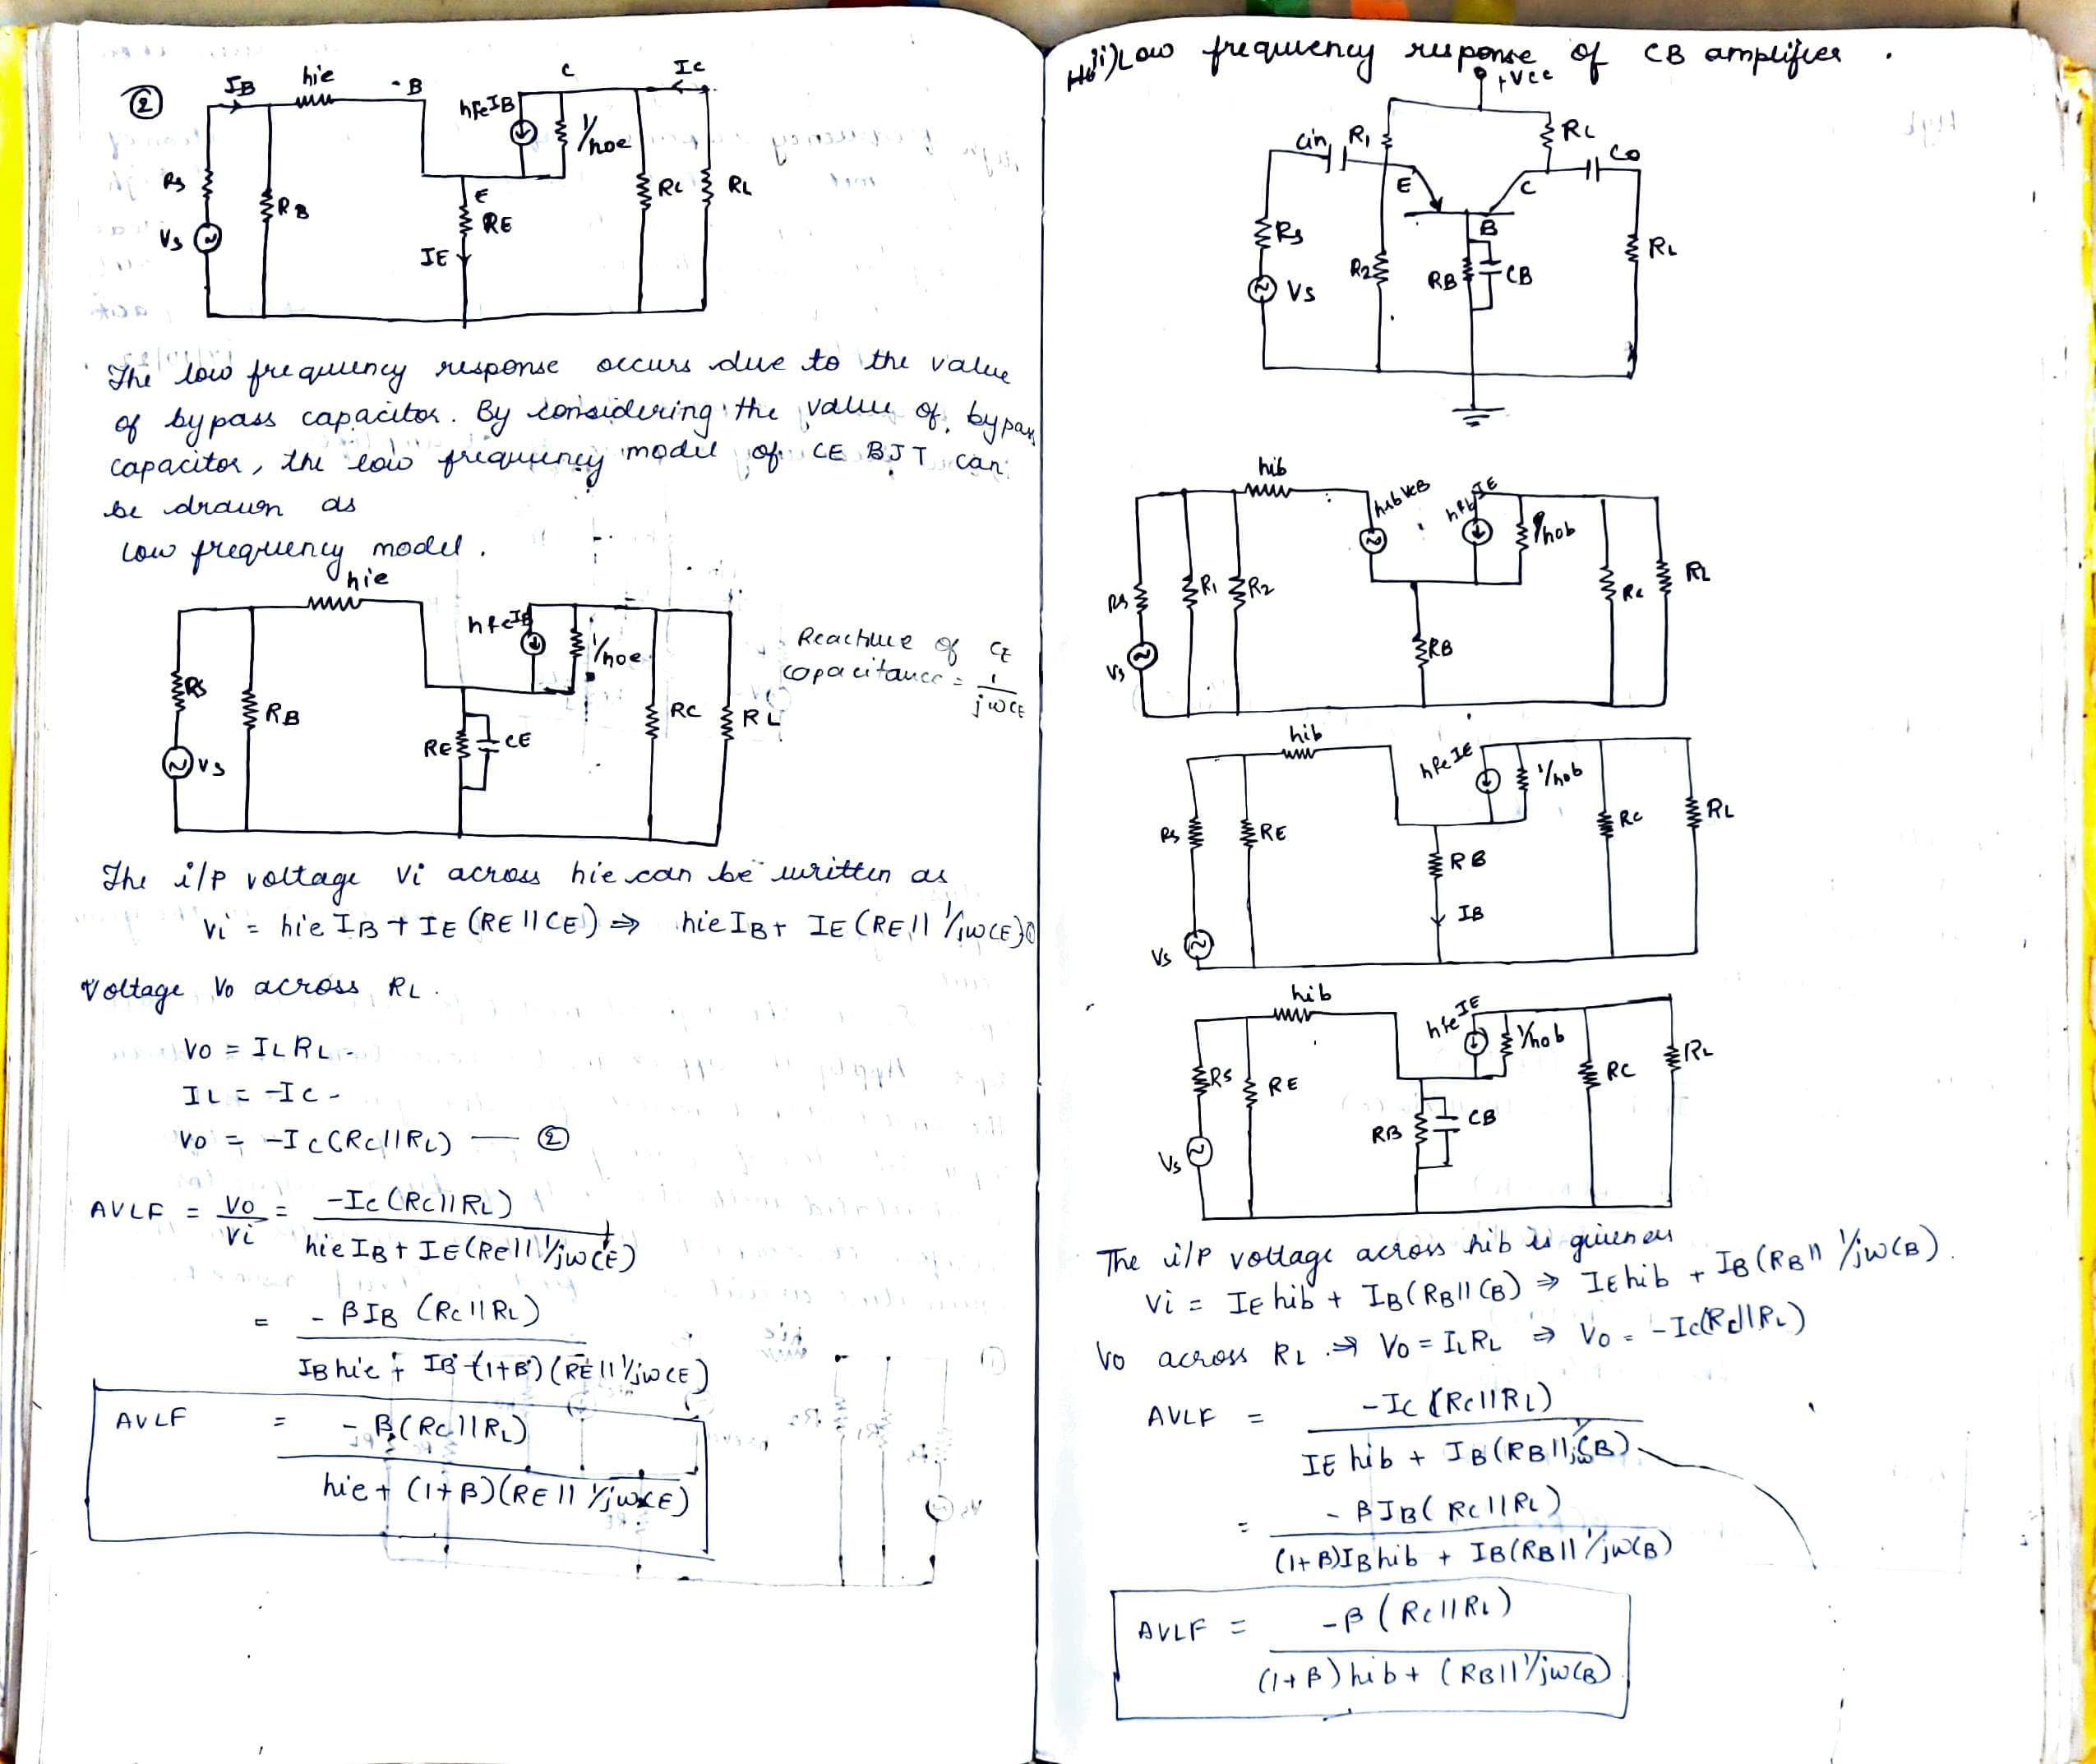 ②
IB
hie
B
hfeIB
C
IC
1/hoe
Rs
RB
E
RE
RC
RL
Vs
IE
The low frequency response occurs due to the value
of bypass capacitor. By considering the value of bypass
capacitor, the low frequency model of CE BJT can
be drawn as
low frequency model.
hie
hfeIB
1/hoe
Reactance of CE
capacitance = 1/jωCE
Rs
RB
RE
CE
RC
RL
Vs
The i/p voltage Vi across hie can be written as
Vi = hie IB + IE (RE || CE) ⇒ hie IB + IE (RE || 1/jωCE)①
Voltage Vo across RL.
Vo = IL RL
IL = -IC
Vo = -IC (RC||RL) — ②
AVLF = Vo/Vi = -IC (RC||RL) / hie IB + IE (RE || 1/jωCE)
= -βIB (RC||RL) / IB hie + IB (1+β) (RE || 1/jωCE)
AVLF = -β(RC||RL) / hie + (1+β)(RE || 1/jωCE)
ii) Low frequency response of CB amplifier.
+VCC
Cin
R1
RC
CO
E
C
B
Rs
R2
RB
CB
RL
Vs
hib
hrbVCB
hfbIE
1/hob
Rs
R1
R2
RB
RC
RL
Vs
hib
hfeIE
1/hob
Rs
RE
RB
IB
RC
RL
Vs
hib
hfeIE
1/hob
RS
RE
RB
CB
RC
RL
Vs
The i/p voltage across hib is given as
Vi = IE hib + IB (RB || CB) ⇒ IE hib + IB (RB || 1/jωCB).
Vo across RL ⇒ Vo = IL RL ⇒ Vo = -IC (RC||RL)
AVLF = -IC (RC||RL) / IE hib + IB (RB || 1/jωCB)
= -βIB (RC||RL) / (1+β)IB hib + IB (RB || 1/jωCB)
AVLF = -β (RC||RL) / (1+β) hib + (RB || 1/jωCB)